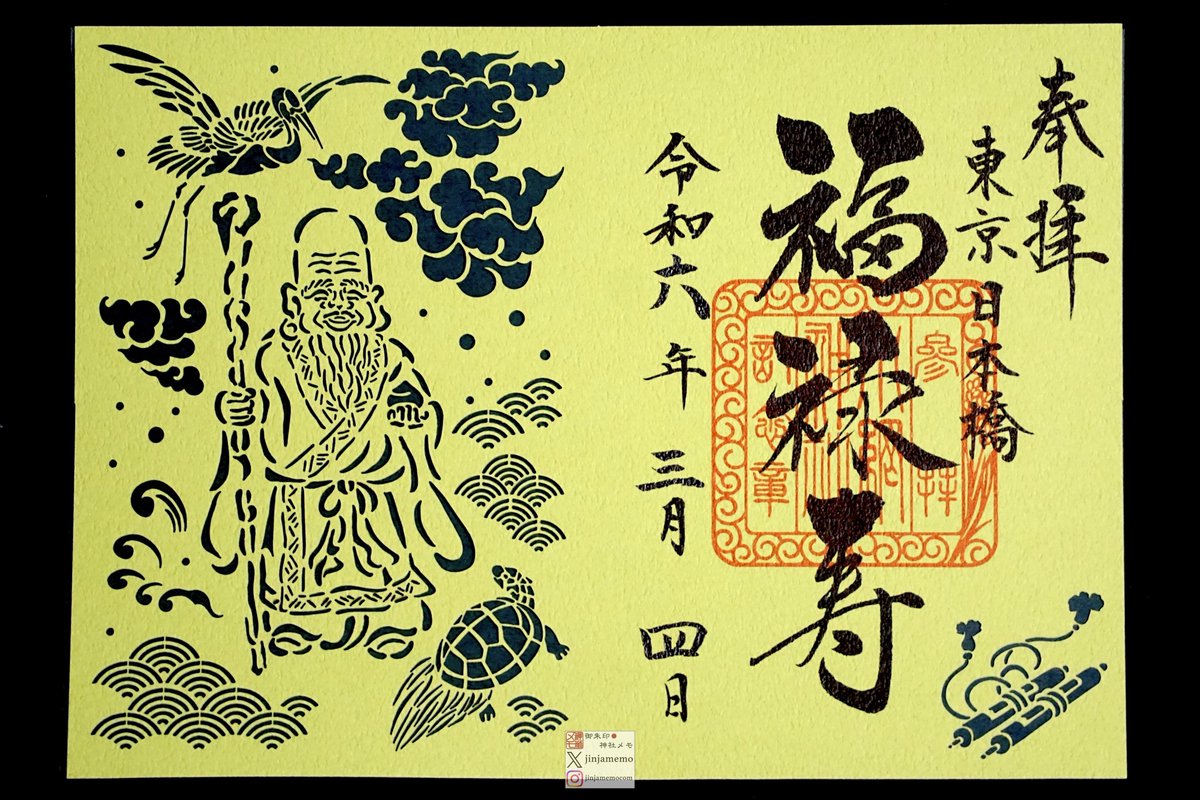 奉拝
東京
日本橋
福禄寿
令和六年 三月 四日
御朱印●
神社メモ
jinjamemo
jinjamemocom